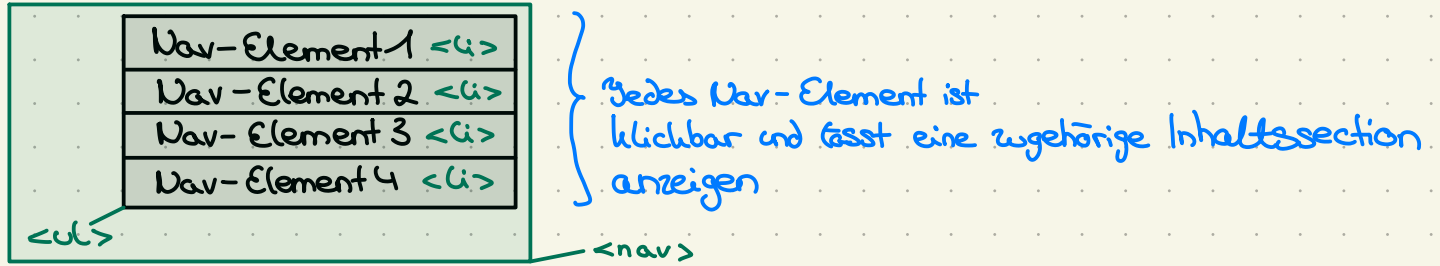 Nav-Element 1 <li>
Nav-Element 2 <li>
Nav-Element 3 <li>
Nav-Element 4 <li>
<ul>
<nav>
Jedes Nav-Element ist
klickbar und lässt eine zugehörige Inhaltssection
anzeigen